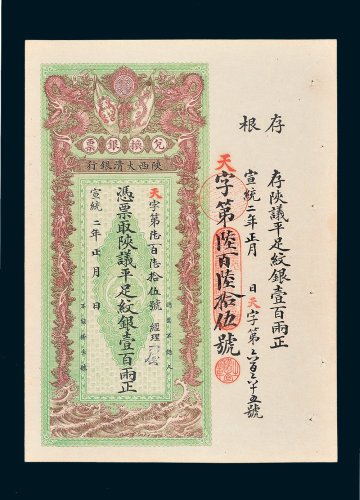 存根
存陝議平足紋銀壹百兩正
宣統二年正月 日天字第六百六十五號
天字第陸百陸拾伍號
兌換銀票
陝西大清銀行
天字第陸百陸拾伍號 經理
憑票取陝議平足紋銀壹百兩正
宣統二年正月 日